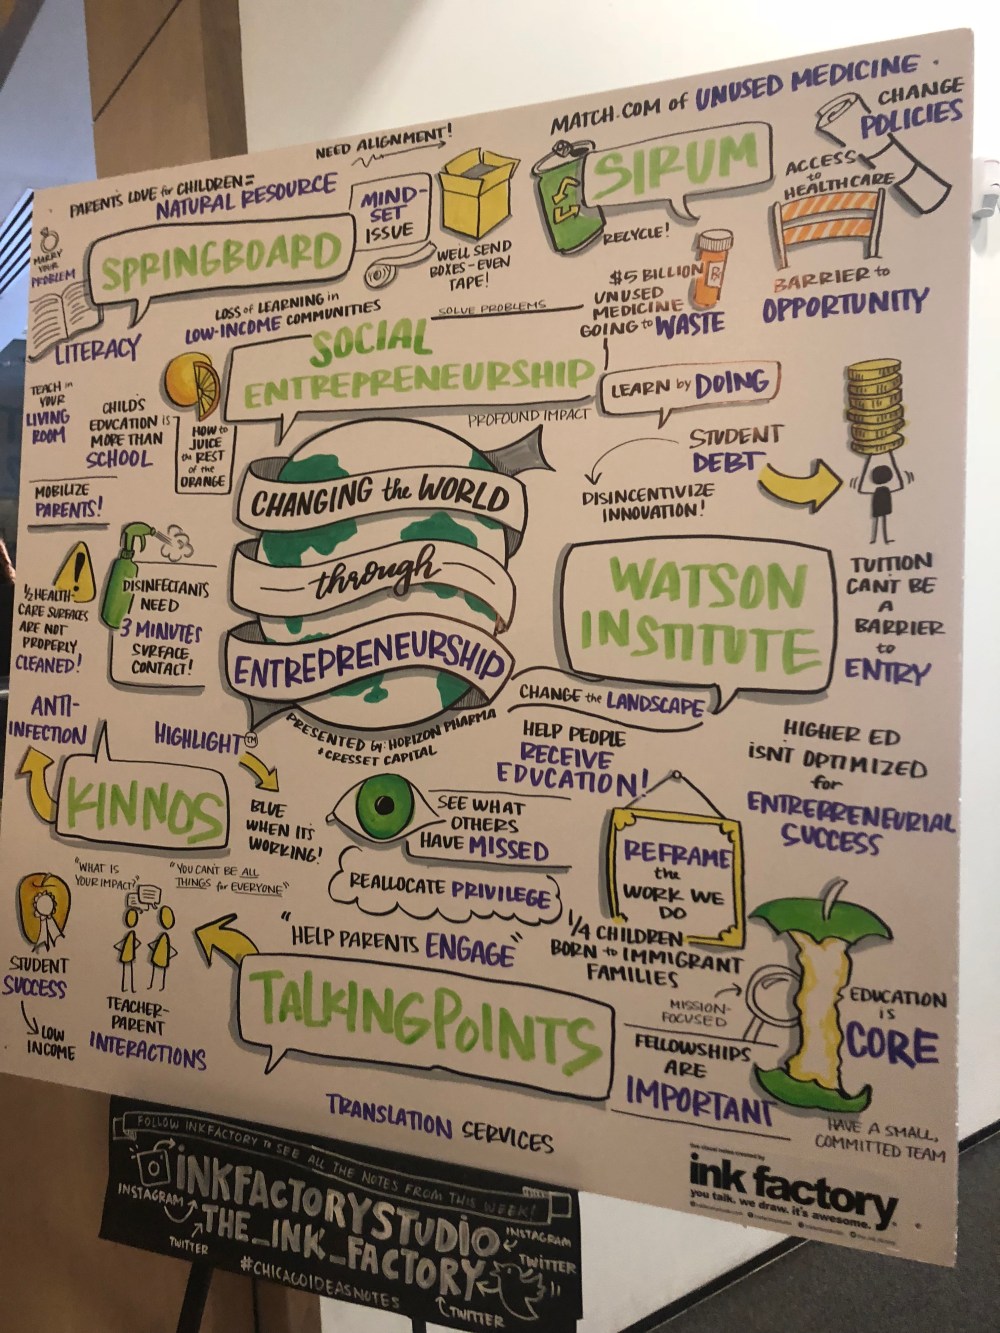 MATCH.COM of UNUSED MEDICINE
NEED ALIGNMENT!
PARENT'S LOVE for CHILDREN =
NATURAL RESOURCE
MIND-
SET
ISSUE
SPRINGBOARD
MARRY
YOUR
PROBLEM
LITERACY
WE'LL SEND
BOXES-EVEN
TAPE!
LOSS of LEARNING in
LOW-INCOME COMMUNITIES
SIRUM
RECYCLE!
CHANGE
POLICIES
ACCESS
to
HEALTHCARE
BARRIER to
OPPORTUNITY
$5 BILLION
UNUSED
MEDICINE
GOING to WASTE
SOLVE PROBLEMS
SOCIAL
ENTREPRENEURSHIP
PROFOUND IMPACT
LEARN by DOING
TEACH in
YOUR
LIVING
ROOM
CHILD'S
EDUCATION IS
MORE THAN
SCHOOL
HOW to
JUICE
the REST
of the
ORANGE
MOBILIZE
PARENTS!
CHANGING the WORLD
through
ENTREPRENEURSHIP
PRESENTED by: HORIZON PHARMA
+ CRESSET CAPITAL
STUDENT
DEBT
DISINCENTIVIZE
INNOVATION!
TUITION
CAN'T BE
A
BARRIER
to
ENTRY
WATSON
INSTITUTE
CHANGE the LANDSCAPE
HELP PEOPLE
RECEIVE
EDUCATION!
HIGHER ED
ISN'T OPTIMIZED
for
ENTREPRENEURIAL
SUCCESS
1/2 HEALTH-
CARE SURFACES
ARE NOT
PROPERLY
CLEANED!
DISINFECTANTS
NEED
3 MINUTES
SURFACE
CONTACT!
ANTI-
INFECTION
HIGHLIGHT TM
KINNOS
BLUE
WHEN IT'S
WORKING!
SEE WHAT
OTHERS
HAVE MISSED
REALLOCATE PRIVILEGE
REFRAME
the
WORK WE
DO
"WHAT IS
YOUR IMPACT?"
"YOU CAN'T BE ALL
THINGS for EVERYONE"
STUDENT
SUCCESS
LOW
INCOME
TEACHER-
PARENT
INTERACTIONS
"HELP PARENTS ENGAGE"
TALKINGPOINTS
TRANSLATION SERVICES
1/4 CHILDREN
BORN to IMMIGRANT
FAMILIES
MISSION-
FOCUSED
FELLOWSHIPS
ARE
IMPORTANT
EDUCATION
IS
CORE
HAVE A SMALL,
COMMITTED TEAM
ink factory
you talk. we draw. it's awesome.
FOLLOW INKFACTORY to SEE ALL THE NOTES FROM THIS WEEK!
INKFACTORYSTUDIO
INSTAGRAM
INSTAGRAM
THE_INK_FACTORY
TWITTER
TWITTER
#CHICAGOIDEASNOTES
TWITTER